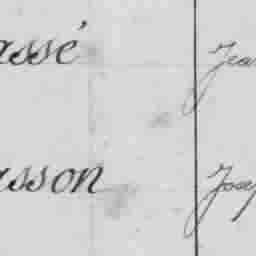 assé Jea
asson Jose